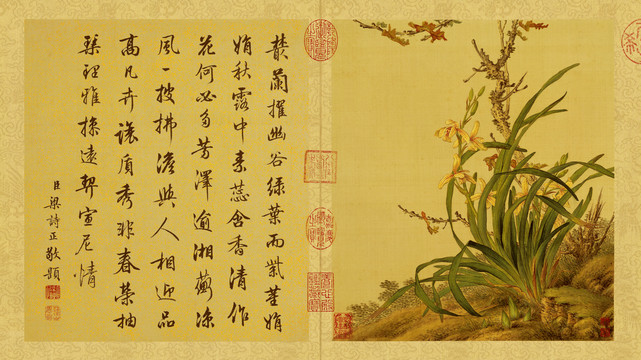 叢蘭擢幽谷綠葉而紫莖娟
娟秋露中素蕊含香清作
花何必多芳澤逾湘蘅涼
風一披拂澹與人相迎品
高凡卉讓質秀非春榮抽
琴理雅操遠契宣尼情
臣梁詩正敬題